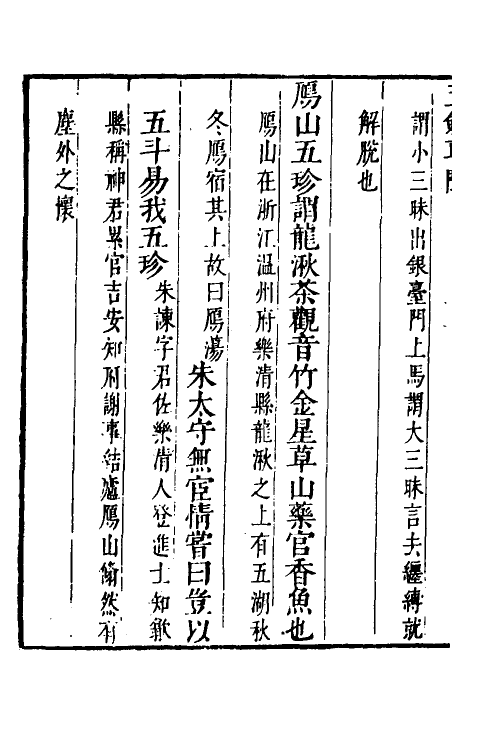 謂小三昧出銀臺門上馬謂大三昧言去纏縛就
解脫也
鴈山五珍謂龍湫茶觀音竹金星草山藥官香魚也
鴈山在浙江溫州府樂清縣龍湫之上有五湖秋
冬鴈宿其上故曰鴈蕩朱太守無宦情嘗曰豈以
五斗易我五珍朱諫字君佐樂清人登進士知歙
縣稱神君累官吉安知府謝事結廬鴈山翛然有
塵外之懷